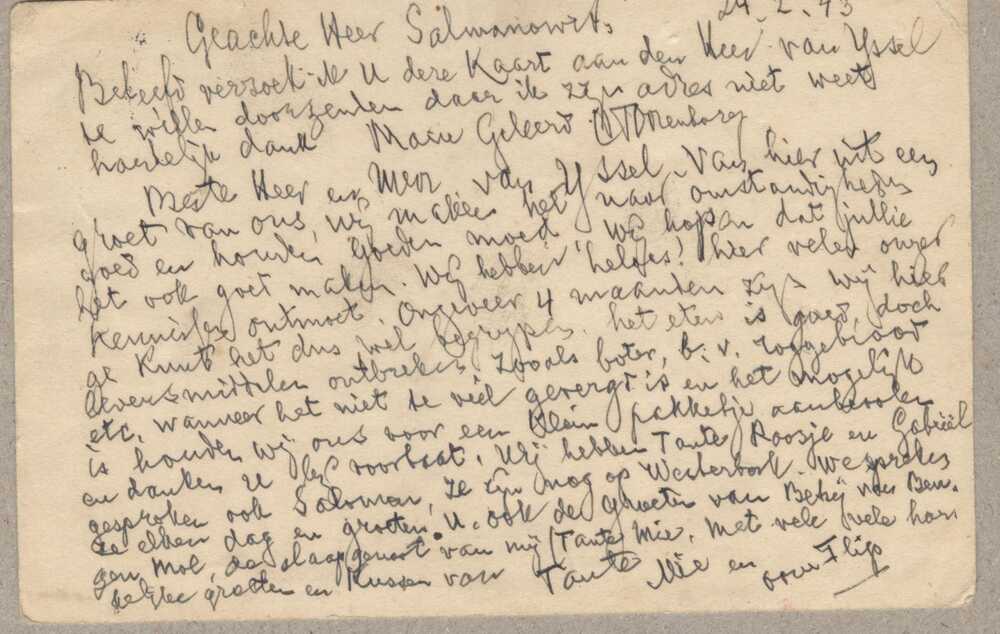 24.2.43
Geachte Heer Salmanowits.
Beleefd verzoek ik U deze Kaart aan den Heer van Yssel
te willen doorzenden daar ik zijn adres niet weet
hartelijk dank Marie Geleerd
Beste Heer en Mevr. van Yssel. Van hier uit een
groet van ons, wij maken het naar omstandigheden
goed en houden goeden moed. Wij hopen dat jullie
het ook goed maken. Wij hebben helaas! hier velen onzer
kennissen ontmoet. Ongeveer 4 maanden zijn wij hier
ge kunt het dus wel begrijpen. het eten is goed, doch
levensmiddelen ontbreken zooals boter, b.v. roggebrood
etc. wanneer het niet te veel gevergd is en het mogelijk
is houden wij ons voor een klein pakketje aanbevolen
en danken U bij voorbaat. Wij hebben Tante Roosje en Gabriël
gesproken ook Salomon, ze zijn nog op Westerbork. We spreken
ze elken dag en groeten U. ook de groeten van Betsij van Ben-
gen Mol, de slaapgenoot van mij (Tante Mie. Met vele vele har-
telijke groeten en Kussen van Tante Mie en oom Flip